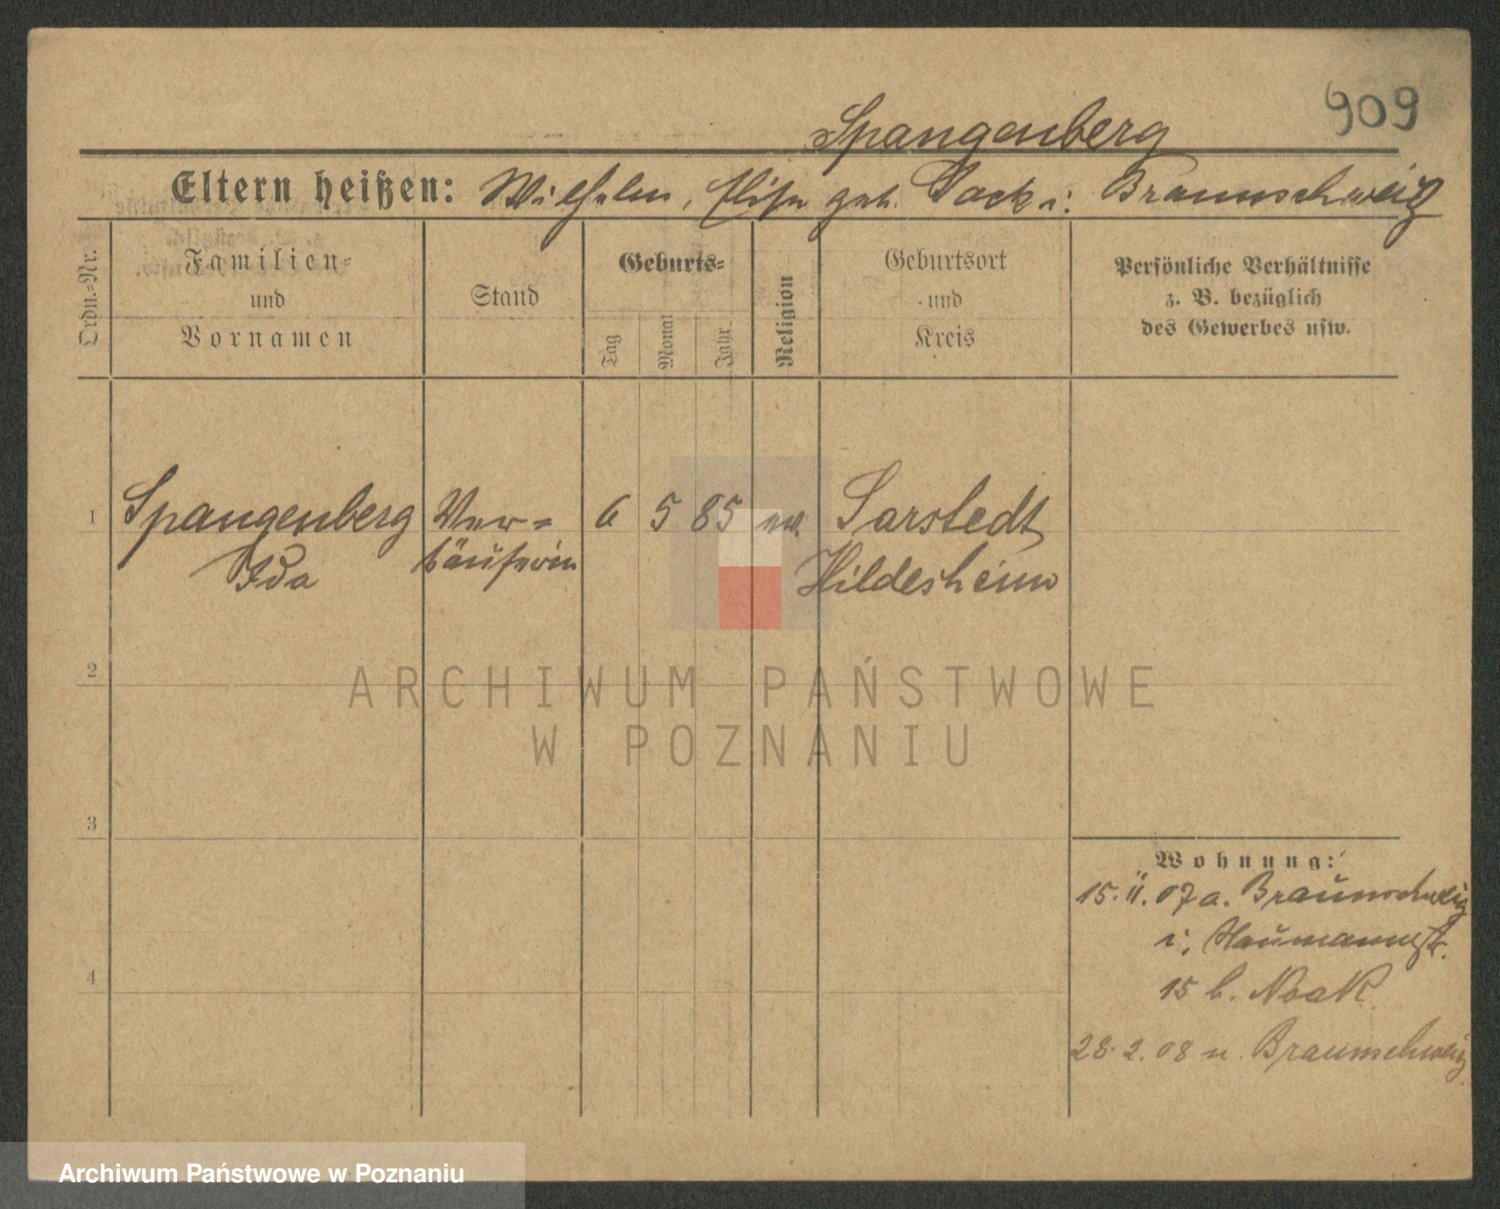 909
Spangenberg
Eltern heißen: Wilhelm, Elise geb. Sack i. Braunschweig
Ordn.-Nr.
Familien-
und
Vornamen
Stand
Geburts-
Tag
Monat
Jahr
Religion
Geburtsort
und
Kreis
Persönliche Verhältnisse
z. B. bezüglich
des Gewerbes usw.
1 Spangenberg Ver- 6 5 85 ev. Sarstedt
Ida käuferin Hildesheim
2
ARCHIWUM PAŃSTWOWE
W POZNANIU
3
Wohnung:
15. 11. 07 a. Braunschweig
i. Naumannstr.
4
15 b. Noak
28. 2. 08 n. Braunschweig
Archiwum Państwowe w Poznaniu